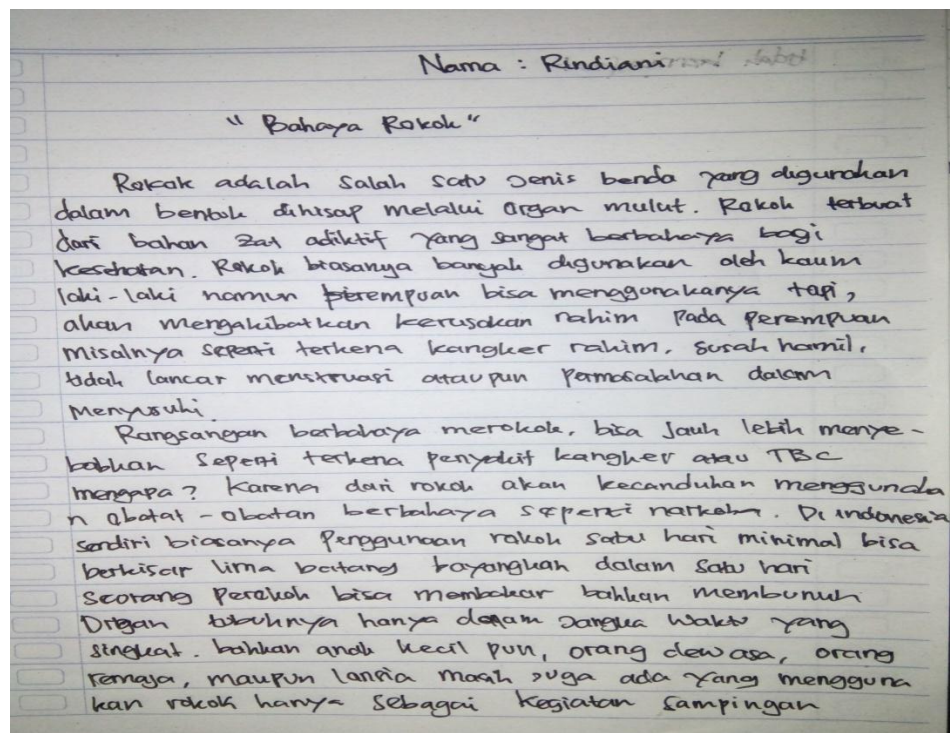 Nama : Rindiani
" Bahaya Rokok "
Rokok adalah salah satu Jenis benda yang digunakan
dalam bentuk dihisap melalui organ mulut. Rokok terbuat
dari bahan zat adiktif yang sangat berbahaya bagi
kesehatan. Rokok biasanya banyak digunakan oleh kaum
laki-laki namun perempuan bisa menggunakanya tapi,
akan mengakibatkan kerusakan rahim pada perempuan
misalnya seperti terkena kangker rahim, susah hamil,
tidak lancar menstruasi ataupun Permasalahan dalam
Menyusuhi.
Rangsangan berbahaya merokok, bisa Jauh lebih menye-
babkan seperti terkena penyakit kangker atau TBC
mengapa? Karena dari rokok akan kecanduhan menggunaka
n obatat-obatan berbahaya seperti narkoba. Di indonesia
sendiri biasanya Penggunaan rokok satu hari minimal bisa
berkisar lima batang bayangkan dalam satu hari
Seorang Perokok bisa membakar bahkan membunuh
Organ tubuhnya hanya dalam Jangka waktu yang
singkat. bahkan anak kecil pun, orang dewasa, orang
remaja, maupun lansia masih Juga ada yang mengguna
kan rokok hanya sebagai kegiatan sampingan